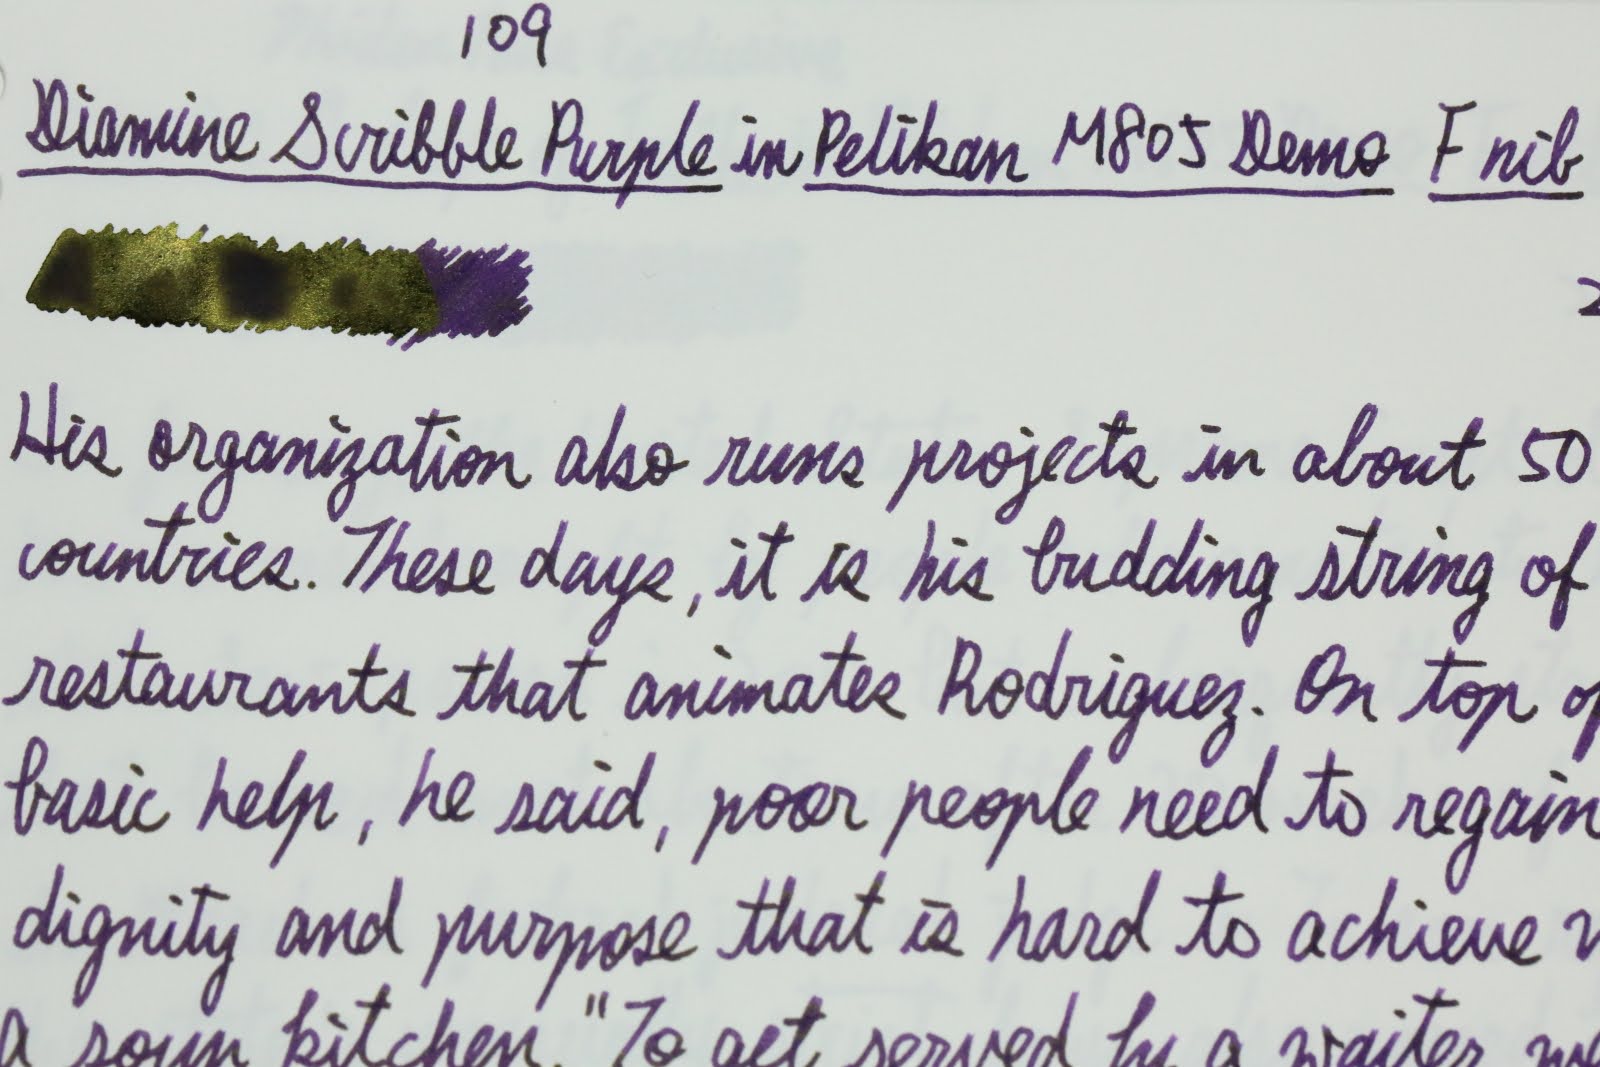 109
Diamine Scribble Purple in Pelikan M805 Demo F nib
His organization also runs projects in about 50
countries. These days, it is his budding string of
restaurants that animates Rodriguez. On top of
basic help, he said, poor people need to regain
dignity and purpose that is hard to achieve
a soup kitchen. "To get served by a waiter